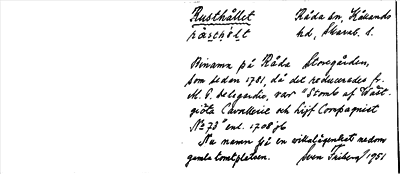 Rusthållet Råda sn, Kållands
hd, Skarab. l.
Binamn på Råda Storegården,
som sedan 1781, då det reducerades fr.
M. G. delagardie, var "Stomb af Wäst-
giöta Cavallerie och Lijf Compagniet
No 73" enl. 1708 jb
Nu namn på en lägenhet nedom
gamla tomtplatsen. Sven Friberg 1951